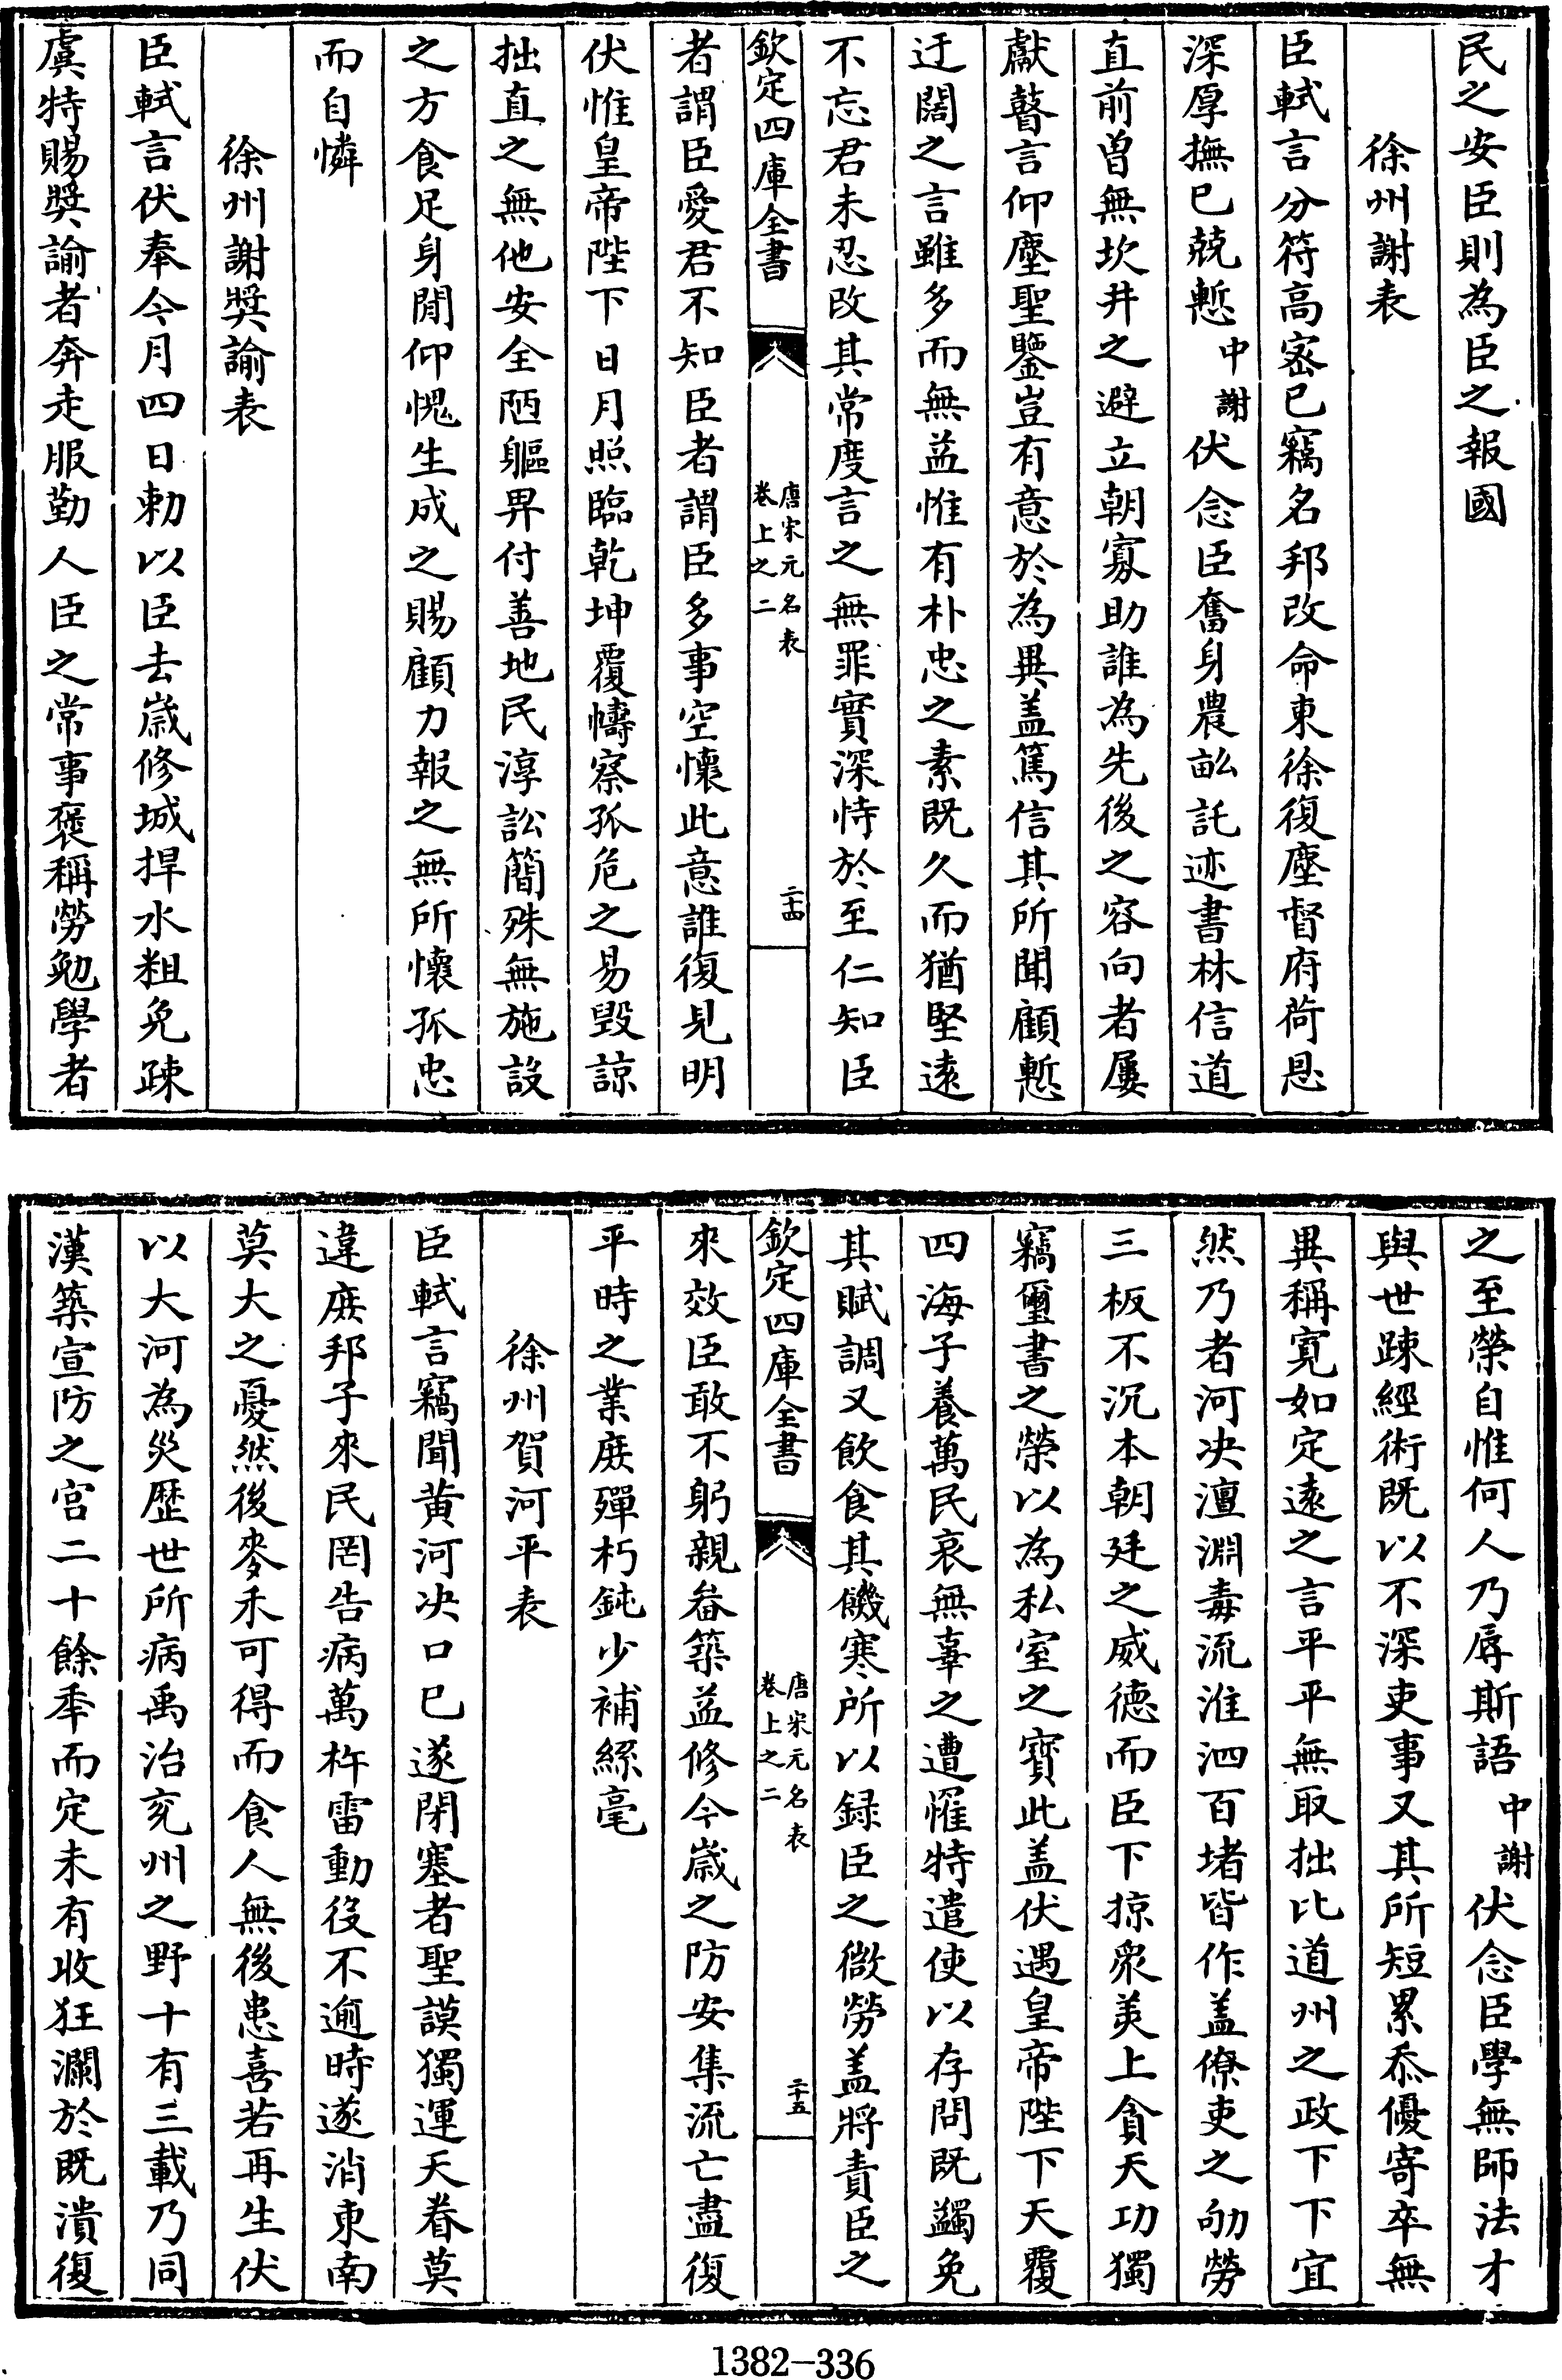 民之安臣則為臣之報國
徐州謝表
臣軾言分符高宻已竊名邦改命東徐復塵督府荷恩
深厚撫已兢慙中謝伏念臣奮身農畝託迹書林信道
直前曽無坎井之避立朝寡助誰為先後之容向者屢
獻瞽言仰塵聖鑒豈有意於為異盖篤信其所聞顧慙
迂闊之言雖多而無益惟有朴忠之素既久而猶堅逺
不忘君未忍改其常度言之無罪實深恃於至仁知臣
欽定四庫全書
唐宋元名表
卷上之二
二十四
者謂臣愛君不知臣者謂臣多事空懷此意誰復見明
伏惟皇帝陛下日月照臨乾坤覆幬察孤危之易毀諒
拙直之無他安全陋軀畀付善地民淳訟簡殊無施設
之方食足身閒仰愧生成之賜顧力報之無所懷孤忠
而自憐
徐州謝奬諭表
臣軾言伏奉今月四日勅以臣去歲修城捍水粗免疎
虞特賜奬諭者奔走服勤人臣之常事褒稱勞勉學者
之至榮自惟何人乃辱斯語中謝伏念臣學無師法才
與世疎經術既以不深吏事又其所短累忝優寄卒無
異稱寛如定逺之言平平無取拙比道州之政下下宜
然乃者河决澶淵毒流淮泗百堵皆作盖僚吏之劬勞
三板不沉本朝廷之威德而臣下掠衆美上貪天功獨
竊璽書之榮以為私室之寶此盖伏遇皇帝陛下天覆
四海子養萬民哀無辜之遭罹特遣使以存問既蠲免
其賦調又飲食其饑寒所以録臣之微勞盖將責臣之
欽定四庫全書
唐宋元名表
卷上之二
二十五
來效臣敢不躬親畚築益修今歲之防安集流亡盡復
平時之業庶殫朽鈍少補絲毫
徐州賀河平表
臣軾言竊聞黄河决口已遂閉塞者聖謨獨運天眷莫
違庶邦子來民罔告病萬杵雷動役不逾時遂消東南
莫大之憂然後麥禾可得而食人無後患喜若再生伏
以大河為災歴世所病禹治兖州之野十有三載乃同
漢築宣防之宫二十餘年而定未有收狂瀾於既潰復
1382-336